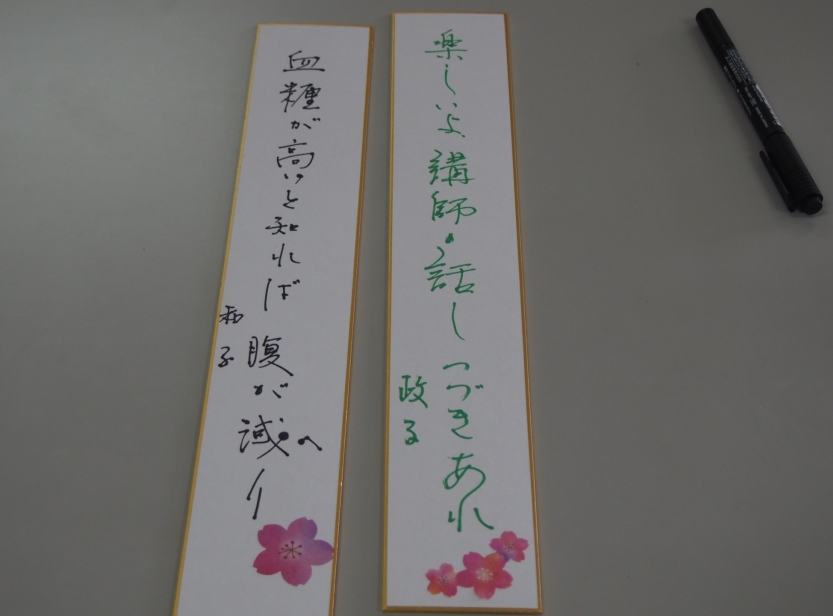 楽しいよ、講師の話しつづきあれ
政る
血糖が高いと知れば腹が減り
へ